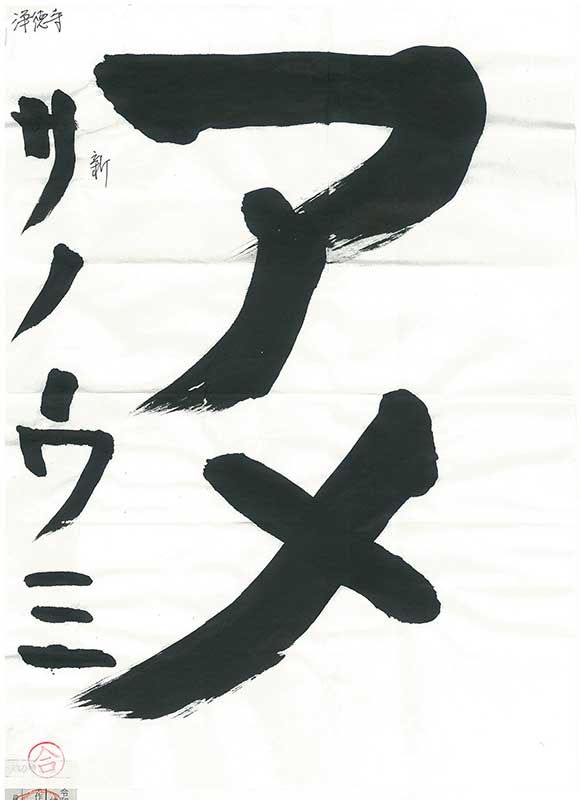 アメ
サノウミ
浄徳寺
新
合